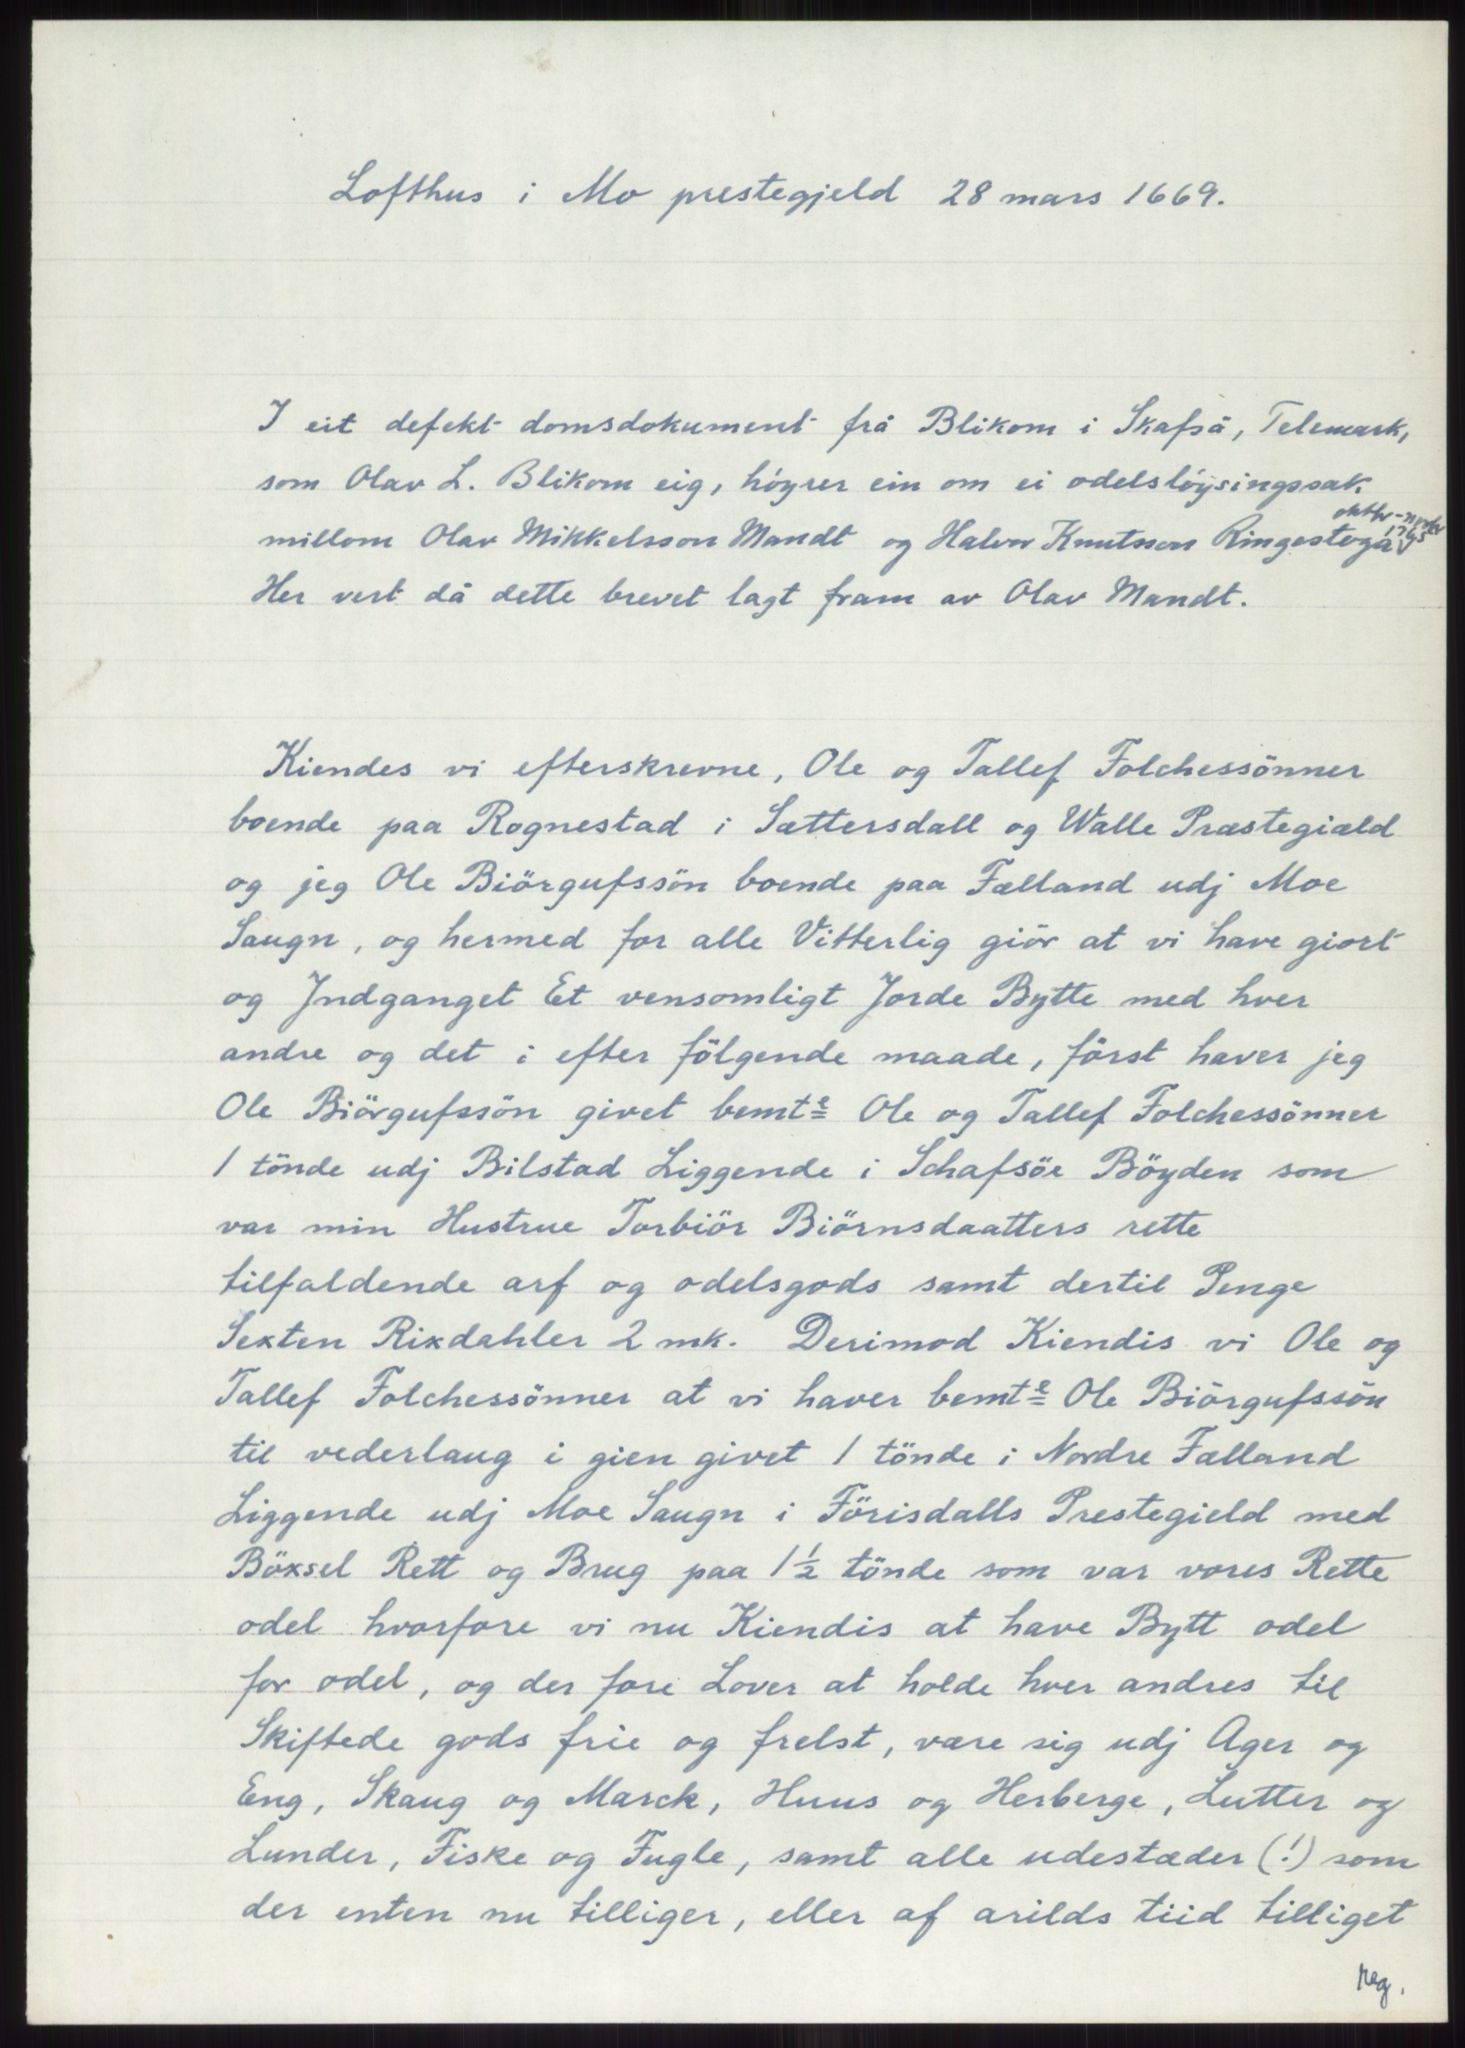 Lofthus i Mo prestegjeld 28 mars 1669.
I eit defekt domsdokument frå Blikom i Skafså, Telemark,
som Olav L. Blikom eig, høyrer ein om ei odelsløysingssak
millom Olav Mikkelsson Mandt og Halvor Knutsson Ringestogå
Her vert då dette brevet lagt fram av Olav Mandt.
Kiendes vi efterskrevne, Ole og Tallef Folchessönner
boende paa Rognestad i Sættersdall og Walle Præstegiæld
og jeg Ole Biörgufssön boende paa Fælland udj Moe
Saugn, og hermed for alle Vitterlig giör at vi have giort
og Jndganget Et vensomligt Jorde Bytte med hver
andre og det i efter fölgende maade, först haver jeg
Ole Biörgufssön givet bemte Ole og Tallef Folchessönner
1 tönde udj Bilstad Liggende i Schafsöe Böyden som
var min Hustrue Torbiör Biörnsdaatters rette
tilfaldende arf og odelsgods samt dertil Penge
Sexten Rixdahler 2 mk. Derimod Kiendis vi Ole og
Tallef Folchessönner at vi haver bemte Ole Biörgufssön
til vederlaug i gien givet 1 tönde i Nordre Fælland
Liggende udj Moe Saugn i Förisdalls Prestegield med
Böxsel Rett og Brug paa 1½ tönde som var vores Rette
odel hvorfore vi nu Kiendis at have Bytt odel
for odel, og der fore Lover at holde hver andres til
Skiftede gods frie og frelst, være sig udj Ager og
Eng, Skaug og Marck, Huus og Herberge, Lutter og
Lunder, Fiske og Fugle, samt alle udestæder (!) som
der enten nu tilliger, eller af arilds tiid tilliget
reg.